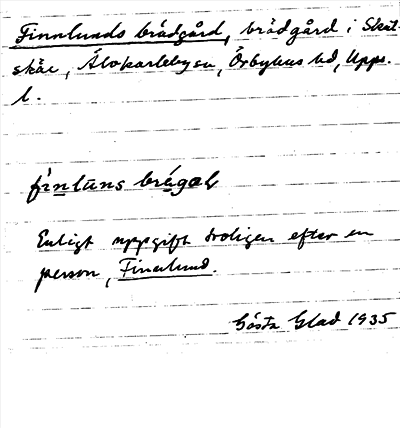 Finnlunds brädgård, brädgård i Skut-
skär, Älvkarleby sn, Örbyhus hd, Upps.
l.
fìnluns brǽgaḷ
Enligt uppgift troligen efter en
person, Finnlund.
Gösta Glad 1935